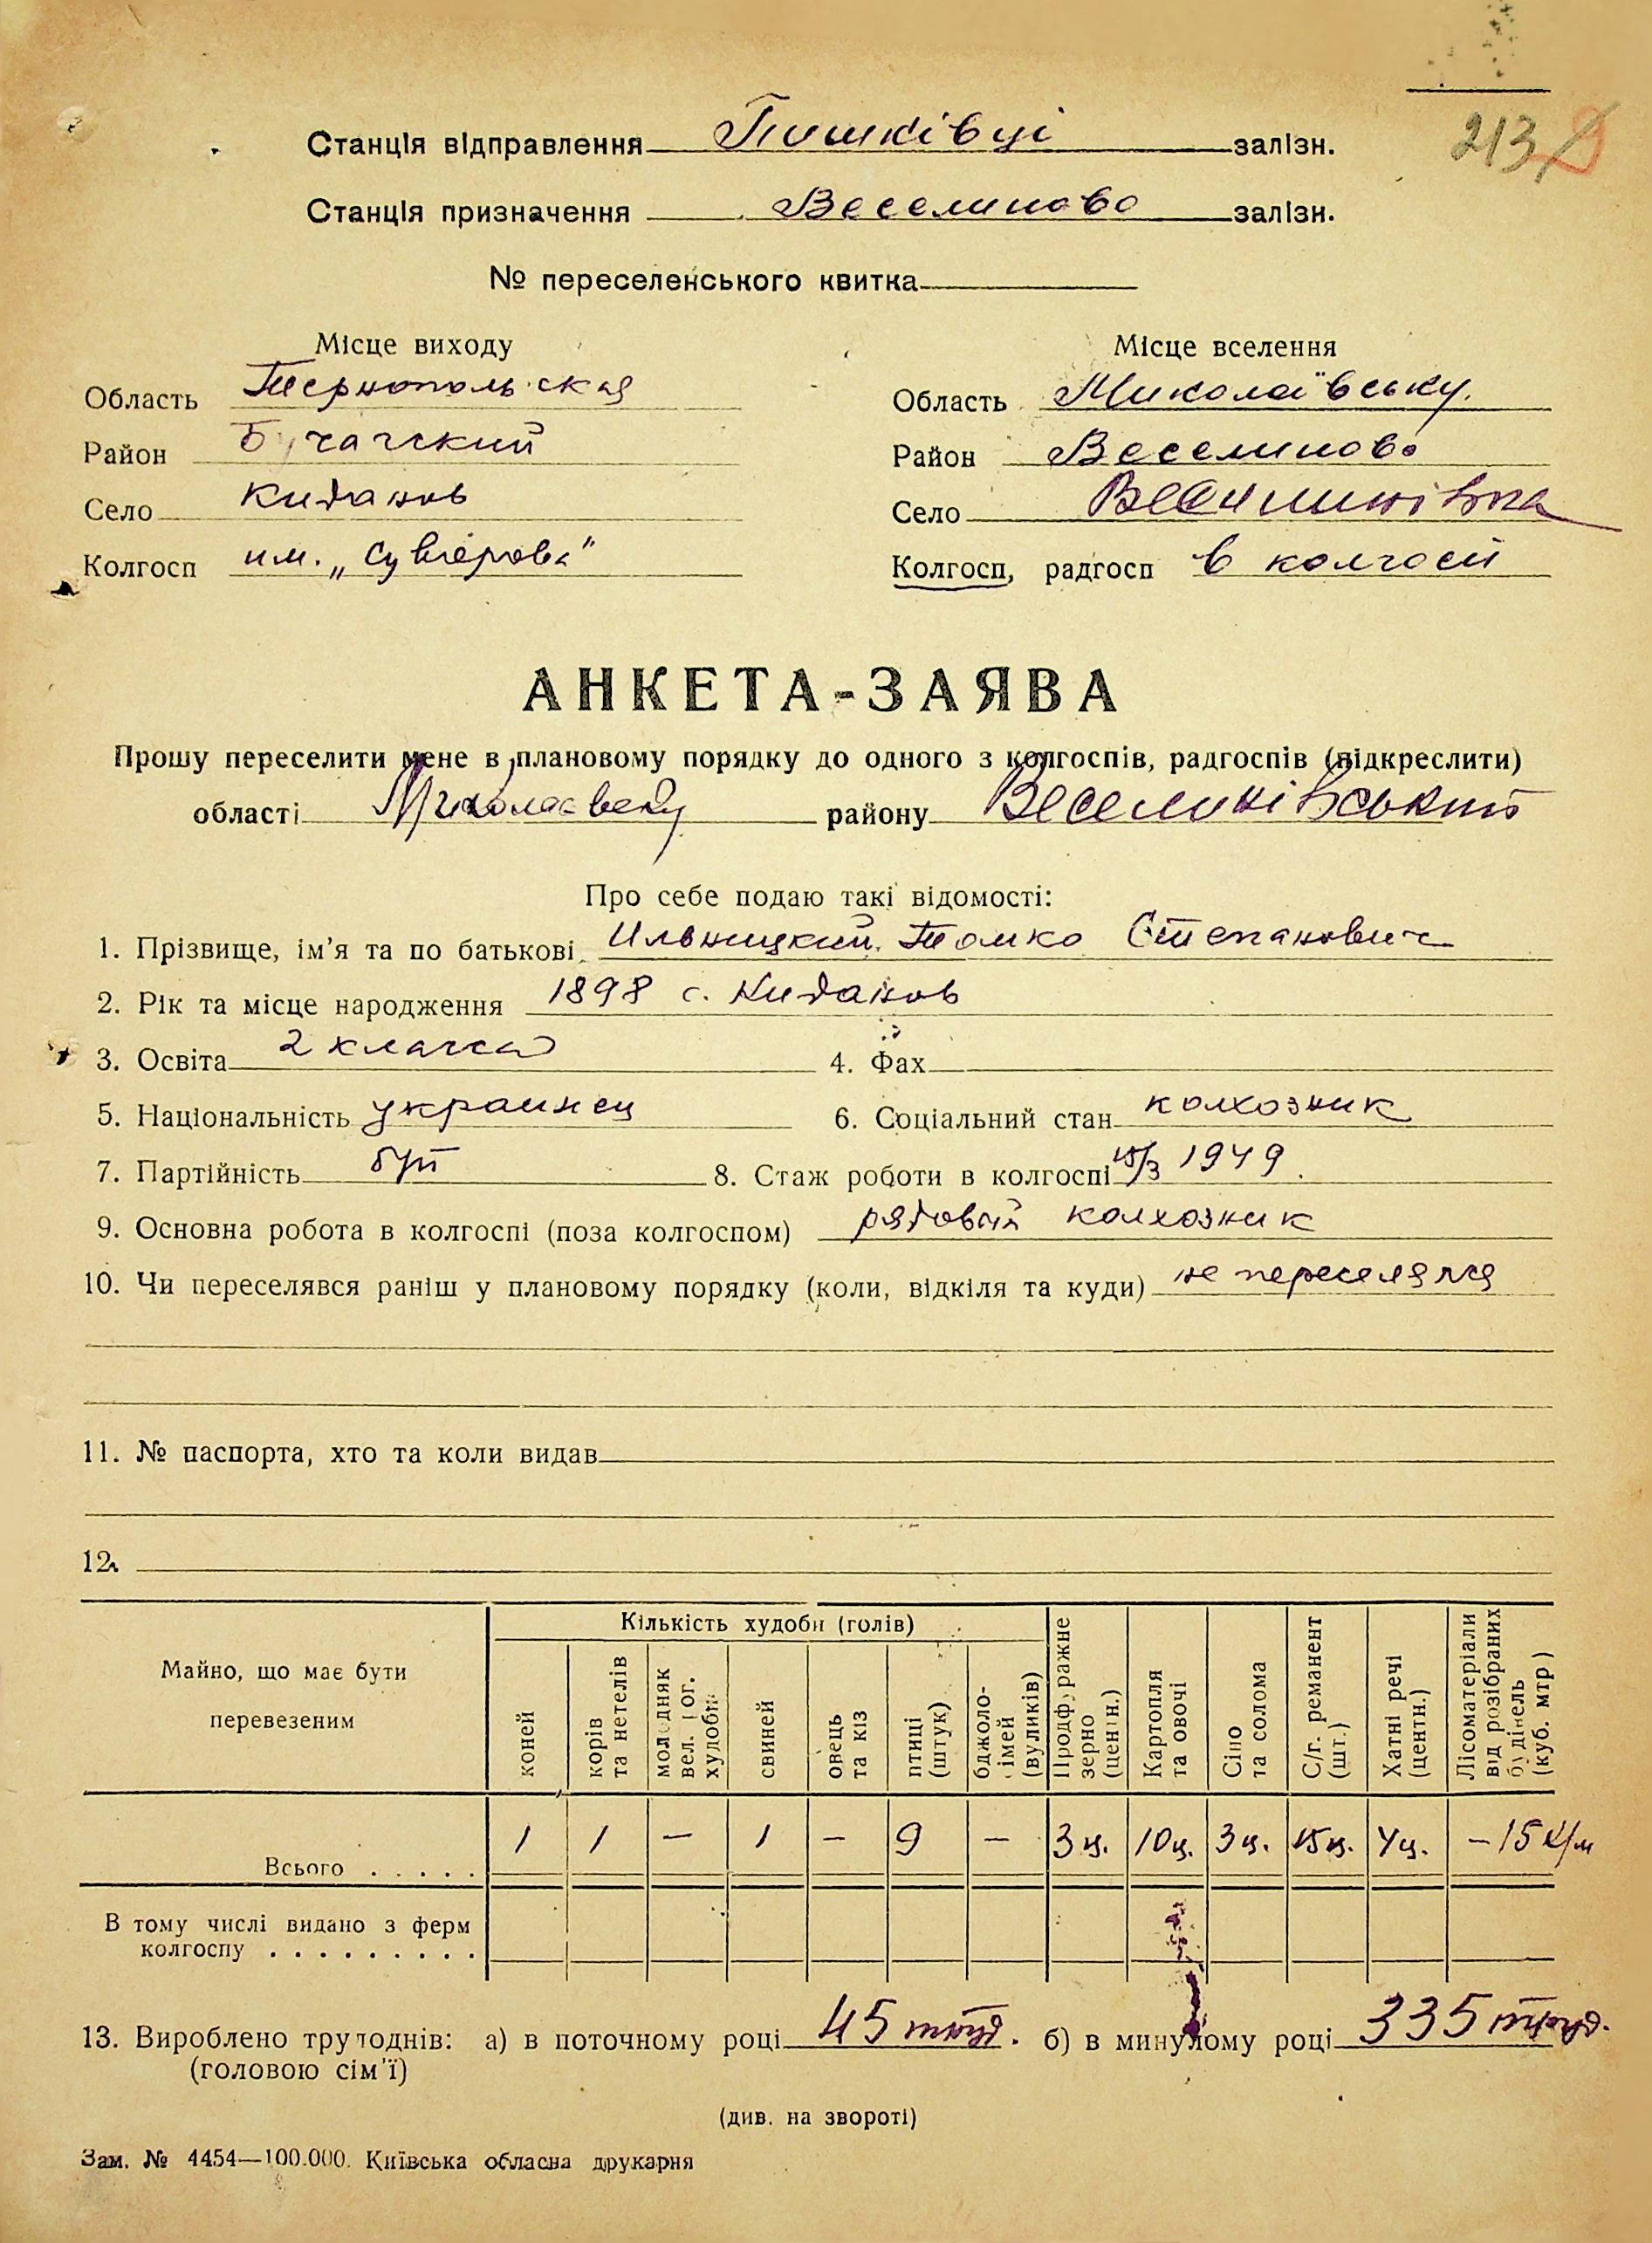 213
Станція відправлення Пишківці залізн.
Станція призначення Веселиново залізн.
№ переселенського квитка
Місце виходу Місце вселення
Область Тернопольская Область Миколаївську
Район Бучачский Район Веселиново
Село Киданов Село Веселинівка
Колгосп им. „Суворова" Колгосп, радгосп в колгосп
АНКЕТА-ЗАЯВА
Прошу переселити мене в плановому порядку до одного з колгоспів, радгоспів (підкреслити)
області Миколаєвську району Веселинівський
Про себе подаю такі відомості:
1. Прізвище, ім'я та по батькові Ильницкий Томко Степанович
2. Рік та місце народження 1898 с. Киданов
3. Освіта 2 класса 4. Фах
5. Національність украинец 6. Соціальний стан колхозник
7. Партійність б/п 8. Стаж роботи в колгоспі 15/3 1949.
9. Основна робота в колгоспі (поза колгоспом) рядовый колхозник
10. Чи переселявся раніш у плановому порядку (коли, відкіля та куди) не переселялся
11. № паспорта, хто та коли видав
12.
Майно, що має бути перевезеним
Кількість худоби (голів)
коней
корів та нетелів
молодняк вел. рог. худоби
свиней
овець та кіз
птиці (штук)
бджоло-сімей (вуликів)
Продфуражне зерно (центн.)
Картопля та овочі
Сіно та солома
С/г. реманент (шт.)
Хатні речі (центн.)
Лісоматеріали від розібраних будінель (куб. мтр)
Всього . . . . . 1 1 — 1 — 9 — 3 ц. 10 ц. 3 ц. 15 ц. 4 ц. – 15 к/м
В тому числі видано з ферм
колгоспу . . . . . . . . .
13. Вироблено трудоднів: а) в поточному році 45 труд. б) в минулому році 335 труд.
(головою сім'ї)
(див. на звороті)
Зам. № 4454—100.000. Київська обласна друкарня